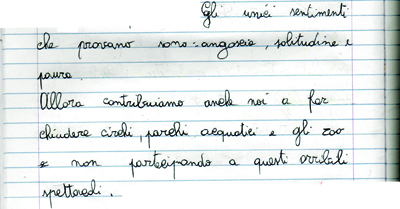 Gli unici sentimenti
che provano sono: angoscia, solitudine e
paura.
Allora contribuiamo anche noi a far
chiudere circhi, parchi acquatici e gli zoo
e non partecipando a questi orribili
spettacoli.